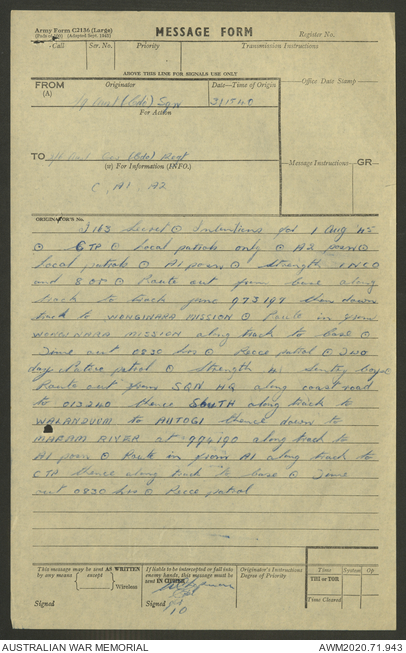 Army Form C2136 (Large)
MESSAGE FORM
Register No.
Call Ser. No. Priority Transmission Instructions
ABOVE THIS LINE FOR SIGNALS USE ONLY
FROM
(A)
Originator
Date—Time of Origin
Office Date Stamp
9 Aust (Cdo) Sqn
311540
For Action
TO
Message Instructions GR
(w) For Information (INFO.)
C A1 A2
ORIGINATOR'S No.
I 163 Secret ⊙ Intentions for 1 Aug 45
⊙ CTP ⊙ Local patrols only ⊙ A2 posn ⊙
Local patrols ⊙ A1 posn ⊙ Strength 1 NCO
and 8 OR ⊙ Route out from base along
track to track junc 973197 then down
track to WONGINARA MISSION ⊙ Route in from
WONGINARA MISSION along track to base ⊙
Time out 0830 hrs ⊙ Recce patrol ⊙ Two
day Native patrol ⊙ Strength 4 Sentry boys
Route out from SQN HQ along coast road
to 013240 thence SOUTH along track to
WALANDUUM to AUTOGI thence down to
MABAM RIVER at 994190 along track to
A1 posn ⊙ Route in from A1 along track to
CTP thence along track to base ⊙ Time
out 0830 hrs ⊙ Recce patrol
This message may be sent AS WRITTEN
by any means except Wireless
Signed
If liable to be intercepted or fall into
enemy hands, this message must be
sent IN CIPHER
Signed
IO
Originator's Instructions
Degree of Priority
Time System Op
THI or TOR
Time Cleared
AUSTRALIAN WAR MEMORIAL
AWM2020.71.943